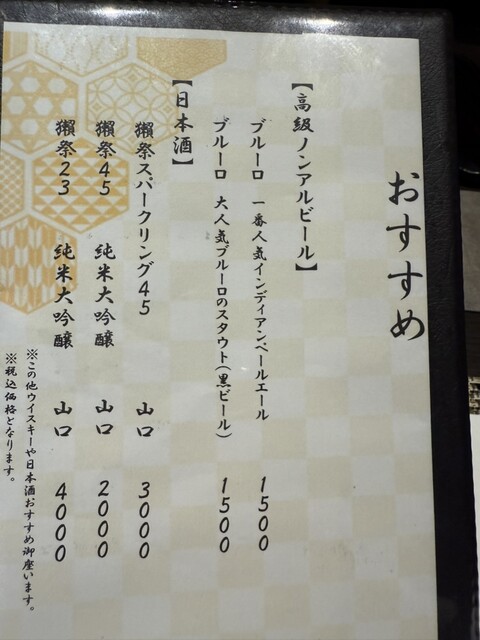 おすすめ
【高級ノンアルビール】
ブルーロ 一番人気インディアンペールエール 1500
ブルーロ 大人気ブルーロのスタウト(黒ビール) 1500
【日本酒】
獺祭スパークリング45 山口 3000
獺祭45 純米大吟醸 山口 2000
獺祭23 純米大吟醸 山口 4000
※この他ウイスキーや日本酒おすすめ御座います。
※税込価格となります。